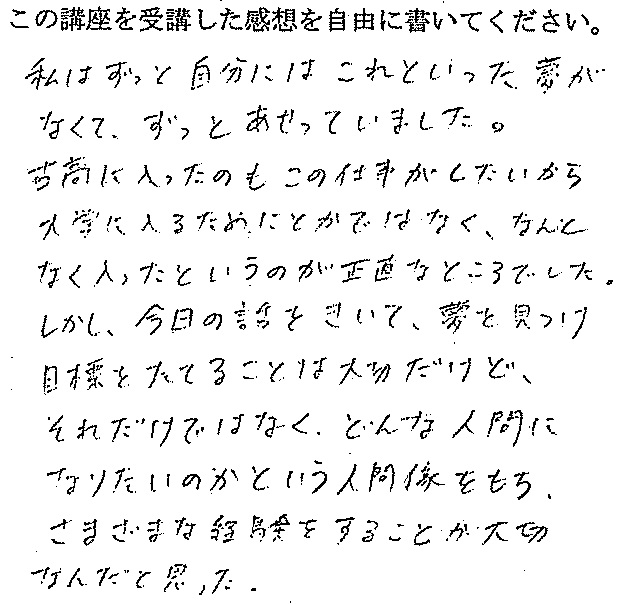 この講座を受講した感想を自由に書いてください。
私はずっと自分にはこれといった夢が
なくて、ずっとあせっていました。
吉商に入ったのもこの仕事がしたいから
大学に入るためにとかではなく、なんと
なく入ったというのが正直なところでした。
しかし、今日の話をきいて、夢を見つけ
目標をたてることは大切だけど、
それだけではなく、どんな人間に
なりたいのかという人間像をもち、
さまざまな経験をすることが大切
なんだと思った。